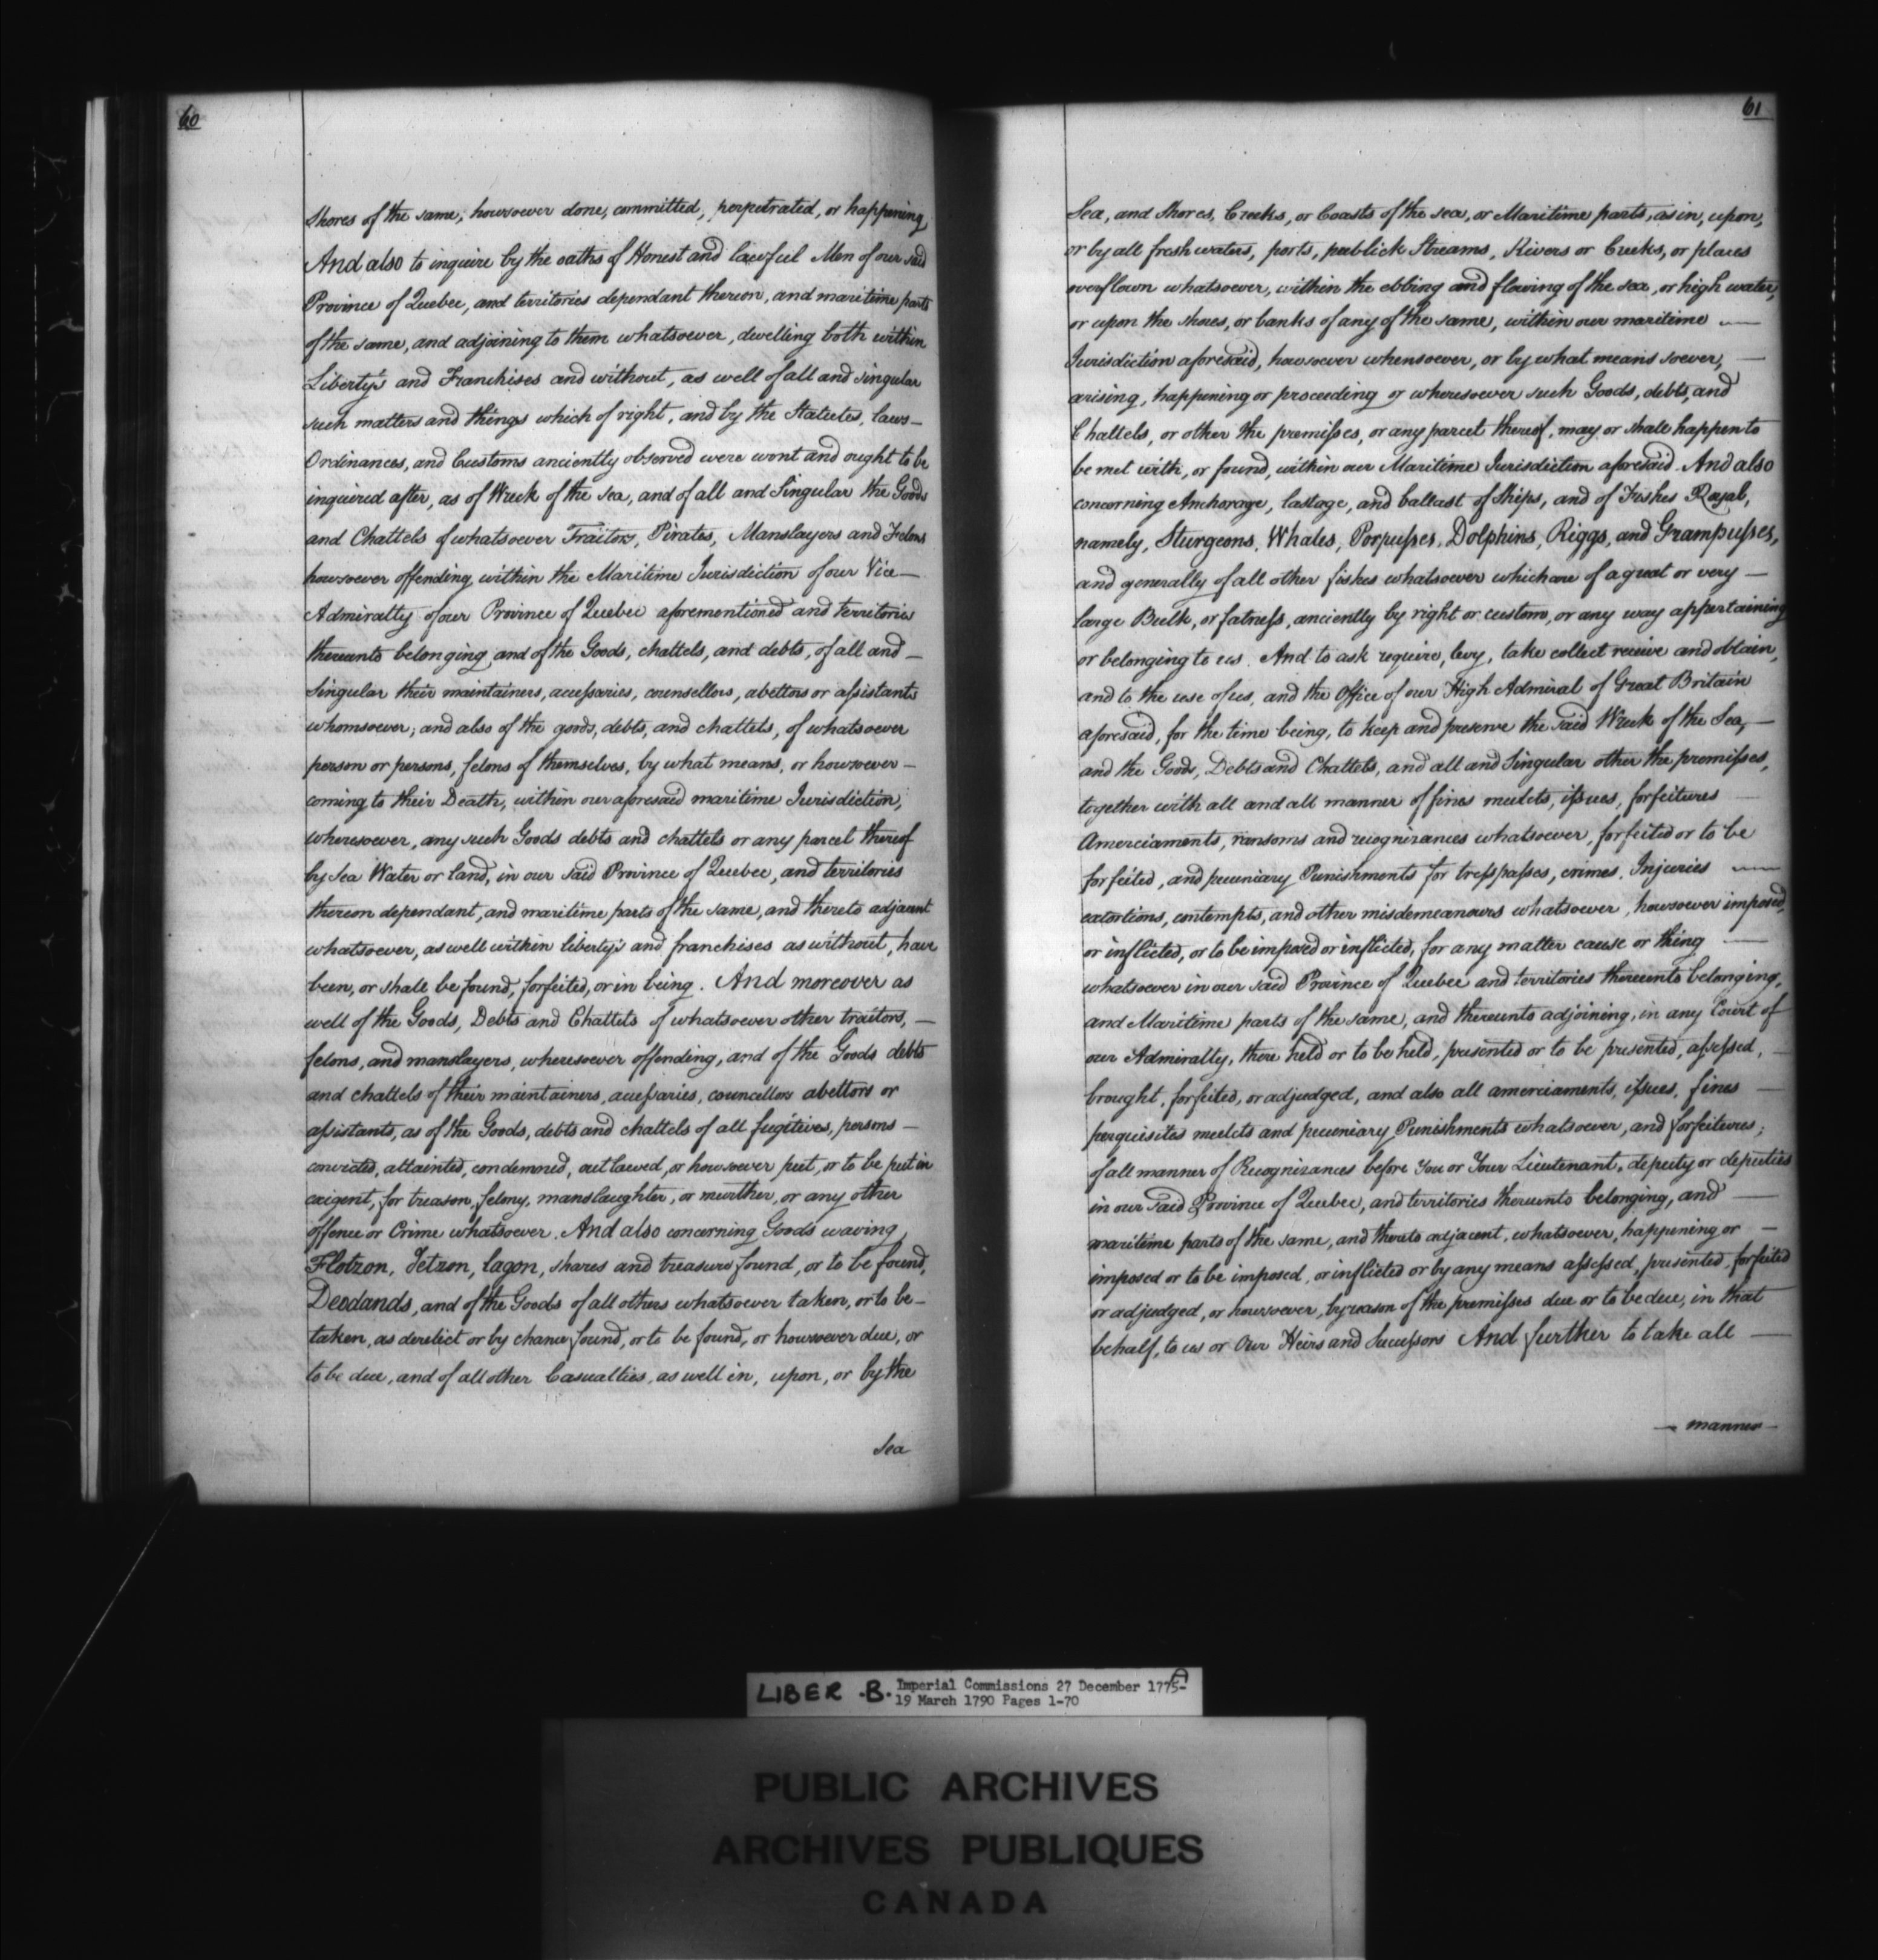 60
Shores of the same, howsoever done, committed, perpetrated, or happening,
And also to inquire by the oaths of Honest and lawful Men of our said
Province of Quebec, and territories dependant thereon, and maritime parts
of the same, and adjoining to them whatsoever, dwelling both within
Liberty's and Franchises and without, as well of all and singular
such matters and things which of right, and by the Statutes, laws —
Ordinances, and Customs anciently observed were wont and ought to be
inquired after, as of Wreck of the Sea, and of all and Singular the Goods
and Chattels of whatsoever Traitors, Pirates, Manslayers and Felons
howsoever offending within the Maritime Jurisdiction of our Vice —
Admiralty of our Province of Quebec aforementioned and territories
thereunto belonging and of the Goods, chattels, and debts, of all and —
Singular their maintainers, accessaries, counsellors, abettors or assistants
whomsoever; and also of the goods, debts, and chattels, of whatsoever
person or persons, felons of themselves, by what means, or howsoever —
coming to their Death, within our aforesaid maritime Jurisdiction,
wheresoever, any such Goods debts and chattels or any parcel thereof
by Sea Water or land, in our said Province of Quebec, and territories
thereon dependant, and maritime parts of the same, and thereto adjacent
whatsoever, as well within liberty's and franchises as without, have
been, or shall be found, forfeited, or in being. And moreover as
well of the Goods, Debts and Chattels of whatsoever other traitors, —
felons, and manslayers, wheresoever offending, and of the Goods debts
and chattels of their maintainers, accessaries, councellors abettors or
assistants, as of the Goods, debts and chattels of all fugitives, persons —
convicted, attainted, condemned, outlawed, or howsoever put, or to be put in
exigent, for treason, felony, manslaughter, or murther, or any other
offence or Crime whatsoever. And also concerning Goods waving,
Flotzon, Jetzon, lagon, shares and treasure found, or to be found,
Deodands, and of the Goods of all others whatsoever taken, or to be —
taken, as derelict or by chance found, or to be found, or howsoever due, or
to be due, and of all other Casualties, as well in, upon, or by the
Sea
61
Sea, and Shores, Creeks, or Coasts of the sea, or Maritime parts, as in, upon,
or by all fresh waters, ports, publick Streams, Rivers or Creeks, or places
overflown whatsoever, within the ebbing and flowing of the sea, or high water,
or upon the shores, or banks of any of the same, within our maritime —
Jurisdiction aforesaid, howsoever whensoever, or by what means soever, —
arising, happening or proceeding or wheresoever such Goods, debts, and
Chattels, or other the premisses, or any parcel thereof, may or shall happen to
be met with, or found, within our Maritime Jurisdiction aforesaid. And also
concerning Anchorage, lastage, and ballast of Ships, and of Fishes Royal,
namely, Sturgeons, Whales, Porpusses, Dolphins, Riggs, and Grampusses,
and generally of all other fishes whatsoever which are of a great or very —
large Bulk, or fatness, anciently by right or custom, or any way appertaining
or belonging to us. And to ask require, levy, take collect receive and obtain,
and to the use of us, and the Office of our High Admiral of Great Britain
aforesaid, for the time being, to keep and preserve the said Wreck of the Sea, —
and the Goods, Debts and Chattels, and all and Singular other the premisses,
together with all and all manner of fines mulcts, issues, forfeitures —
Amerciaments, ransoms and recognizances whatsoever, forfeited or to be
forfeited, and pecuniary Punishments for tresspasses, crimes, Injuries —
extortions, contempts, and other misdemeanours whatsoever, howsoever imposed,
or inflicted, or to be imposed or inflicted, for any matter cause or thing —
whatsoever in our said Province of Quebec and territories thereunto belonging,
and Maritime parts of the same, and thereunto adjoining, in any Court of
our Admiralty, there held or to be held, presented or to be presented, assessed, —
brought, forfeited, or adjudged, and also all amerciaments, issues, fines —
perquisites mulcts and pecuniary Punishments whatsoever, and forfeitures;
of all manner of Recognizances before You or Your Lieutenant, deputy or deputies
in our said Province of Quebec, and territories thereunto belonging, and —
maritime parts of the same, and thereto adjacent, whatsoever, happening or —
imposed or to be imposed, or inflicted or by any means assessed, presented, forfeited
or adjudged, or howsoever, by reason of the premisses due or to be due, in that
behalf, to us or Our Heirs and Successors And further to take all —
— manner —
LIBER .B. Imperial Commissions 27 December 1775-A
19 March 1790 Pages 1-70
PUBLIC ARCHIVES
ARCHIVES PUBLIQUES
CANADA